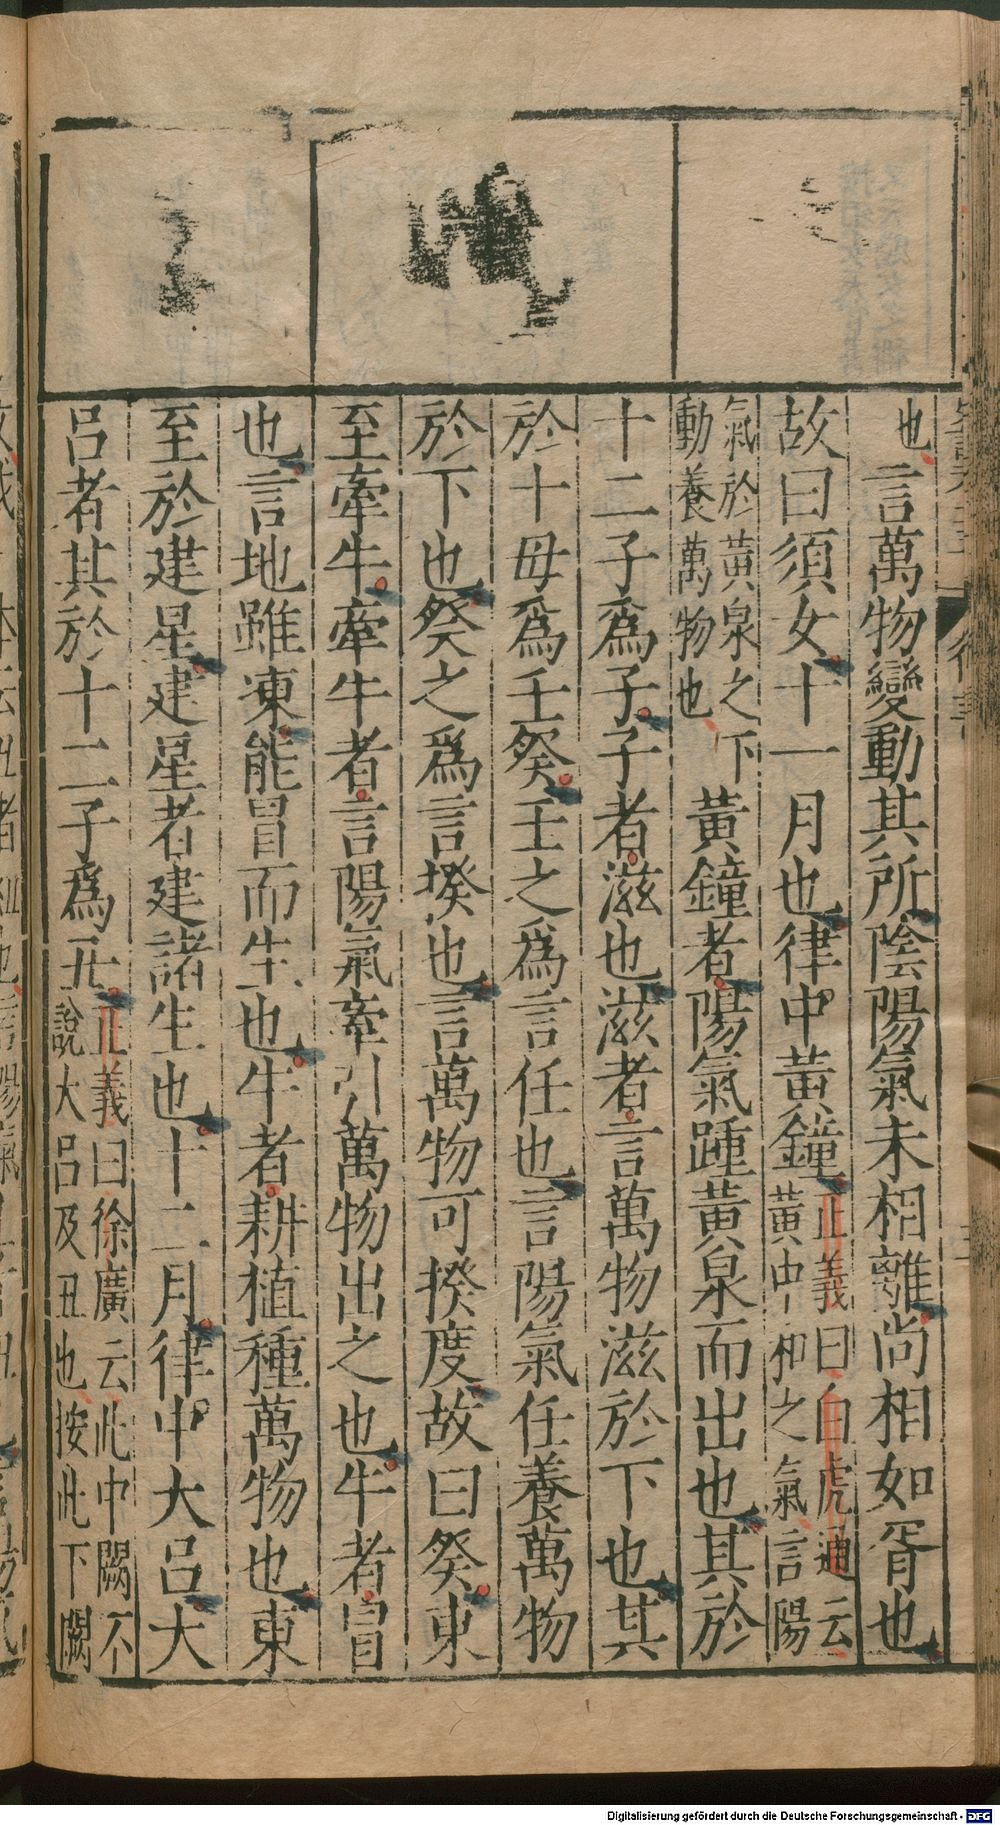 也言萬物變動其所陰陽氣未相離尚相如胥也
故曰須女十一月也律中黃鐘正義曰白虎通云黃中和之氣言陽
氣於黃泉之下動養萬物也黃鐘者陽氣踵黃泉而出也其於
十二子爲子子者滋也滋者言萬物滋於下也其
於十毋爲壬癸壬之爲言任也言陽氣任養萬物
於下也癸之爲言揆也言萬物可揆度故曰癸東
至牽牛牽牛者言陽氣牽引萬物出之也牛者冒
也言地雖凍能冒而生也牛者耕植種萬物也東
至於建星建星者建諸生也十二月律中大呂大
呂者其於十二子爲丑正義曰徐廣云此中闕不說大呂及丑也按此下闕
Digitalisierung gefördert durch die Deutsche Forschungsgemeinschaft - DFG